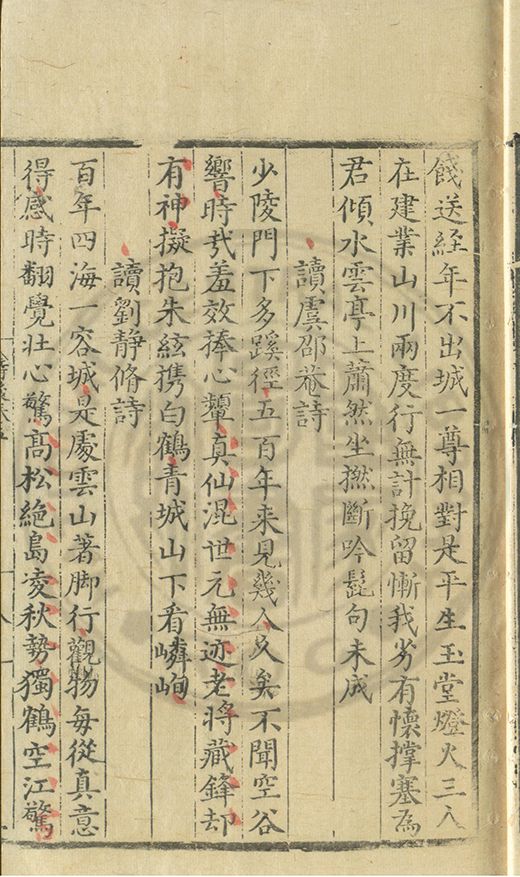 餞送經年不出城一尊相對是平生玉堂燈火三入
在建業山川兩度行無計挽留慚我劣有懷撑塞為
君傾水雲亭上蕭然坐撚斷吟髭句未成
讀虞邵菴詩
少陵門下多蹊徑五百年来見幾人久矣不聞空谷
響時㦲羞效捧心顰真仙混世元無迹老將藏鋒却
有神擬抱朱絃携白鶴青城山下看嶙峋
讀劉静脩詩
百年四海一容城是處雲山著脚行觀物每從真意
得感時翻覺壮心驚髙松絶島凌秋勢獨鶴空江驚